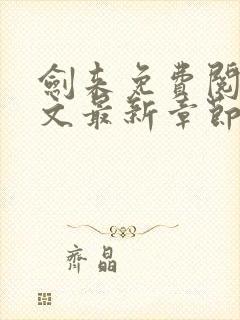 劍来免費閱
文最新章節
齊晶